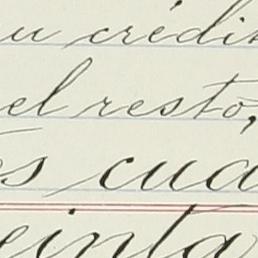 u crédi
el resto,
s cua
einta